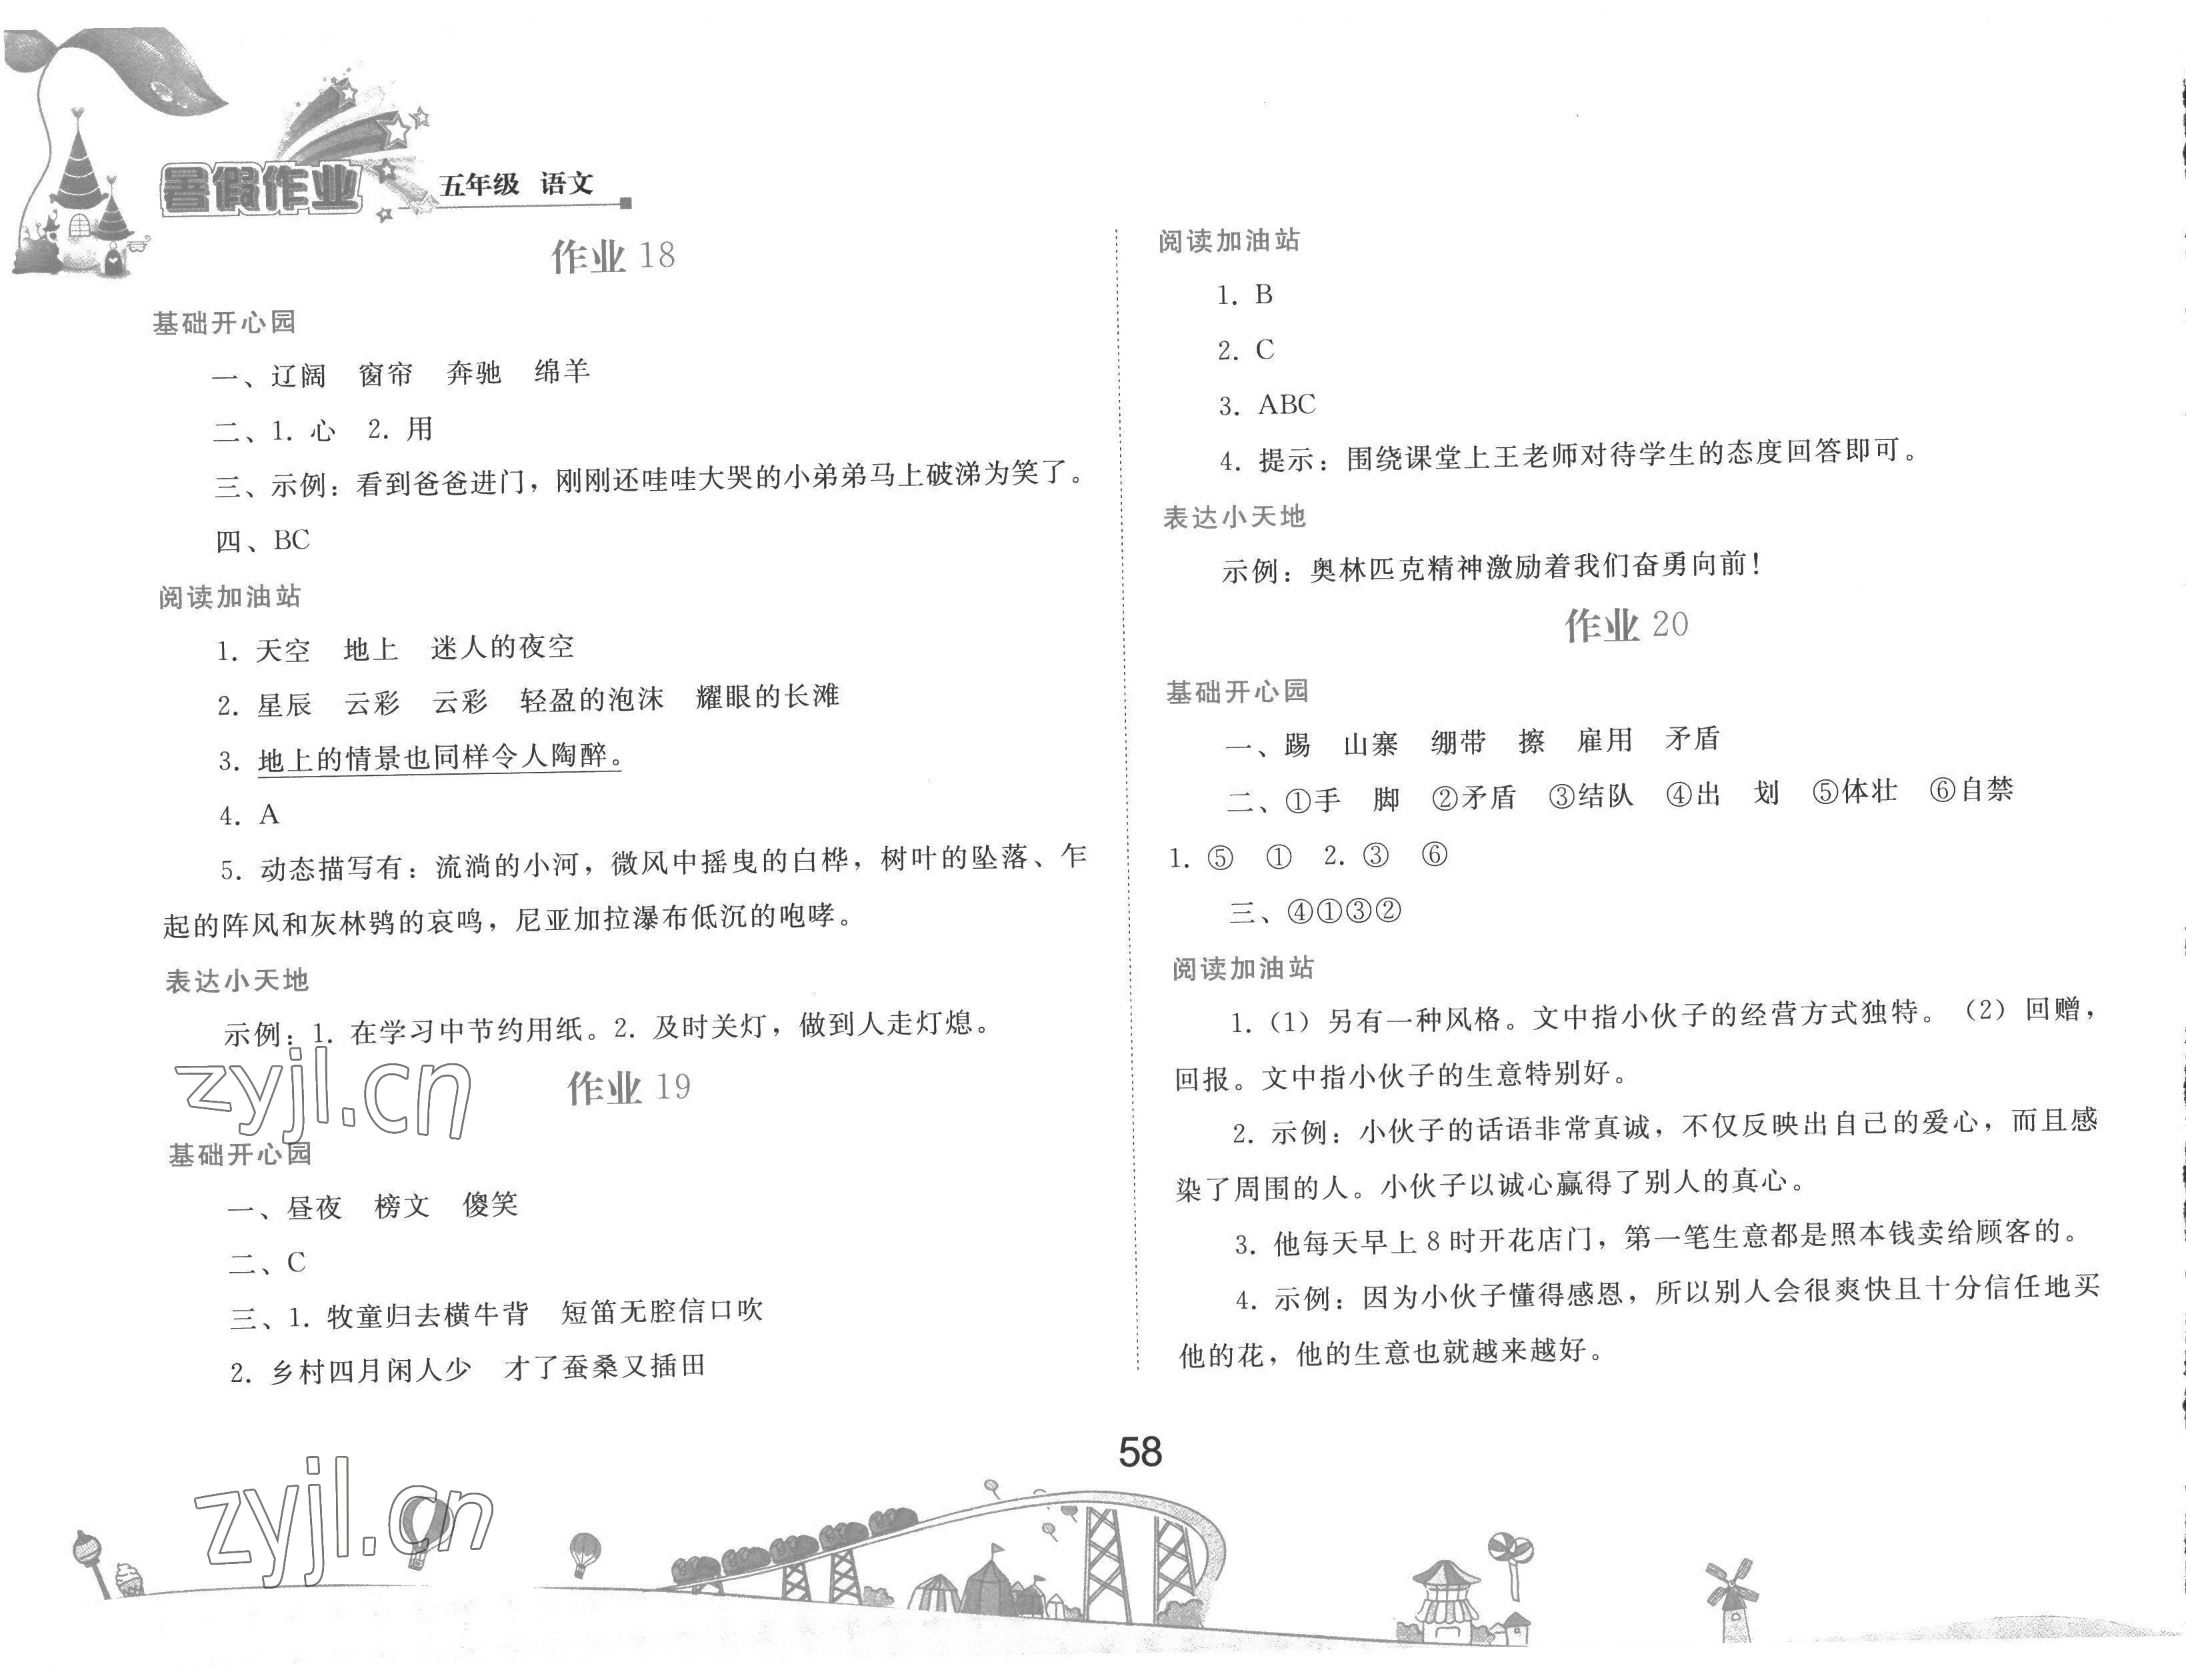 暑假作业 五年级 语文
作业 18
基础开心园
一、辽阔 窗帘 奔驰 绵羊
二、1. 心 2. 用
三、示例：看到爸爸进门，刚刚还哇哇大哭的小弟弟马上破涕为笑了。
四、BC
阅读加油站
1. 天空 地上 迷人的夜空
2. 星辰 云彩 云彩 轻盈的泡沫 耀眼的长滩
3. 地上的情景也同样令人陶醉。
4. A
5. 动态描写有：流淌的小河，微风中摇曳的白桦，树叶的坠落、乍
起的阵风和灰林鸮的哀鸣，尼亚加拉瀑布低沉的咆哮。
表达小天地
示例：1. 在学习中节约用纸。2. 及时关灯，做到人走灯熄。
zyjl.cn
作业 19
基础开心园
一、昼夜 榜文 傻笑
二、C
三、1. 牧童归去横牛背 短笛无腔信口吹
2. 乡村四月闲人少 才了蚕桑又插田
阅读加油站
1. B
2. C
3. ABC
4. 提示：围绕课堂上王老师对待学生的态度回答即可。
表达小天地
示例：奥林匹克精神激励着我们奋勇向前！
作业 20
基础开心园
一、踢 山寨 绷带 擦 雇用 矛盾
二、①手 脚 ②矛盾 ③结队 ④出 划 ⑤体壮 ⑥自禁
1. ⑤ ① 2. ③ ⑥
三、④①③②
阅读加油站
1.（1）另有一种风格。文中指小伙子的经营方式独特。（2）回赠，
回报。文中指小伙子的生意特别好。
2. 示例：小伙子的话语非常真诚，不仅反映出自己的爱心，而且感
染了周围的人。小伙子以诚心赢得了别人的真心。
3. 他每天早上 8 时开花店门，第一笔生意都是照本钱卖给顾客的。
4. 示例：因为小伙子懂得感恩，所以别人会很爽快且十分信任地买
他的花，他的生意也就越来越好。
58
zyjl.cn